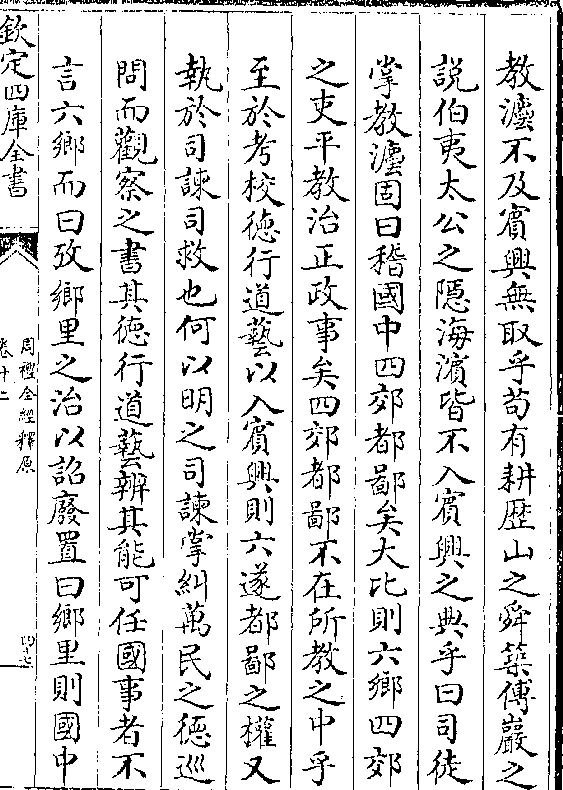 教灋不及賓興無取乎苟有耕歴山之舜築傅巖之
說伯夷太公之隠海濱皆不入賓興之典乎曰司徒
掌教灋固曰稽國中四郊都鄙矣大比則六鄉四郊
之吏平教治正政事矣四郊都鄙不在所教之中乎
至於考校徳行道藝以入賓興則六遂都鄙之權又
執於司諫司救也何以明之司諫掌糾萬民之徳巡
問而觀察之書其徳行道藝辨其能可任國事者不
言六鄉而曰攷鄉里之治以詔廢置曰鄉里則國中
欽定四庫全書
周禮全經釋原
卷十二
四十七